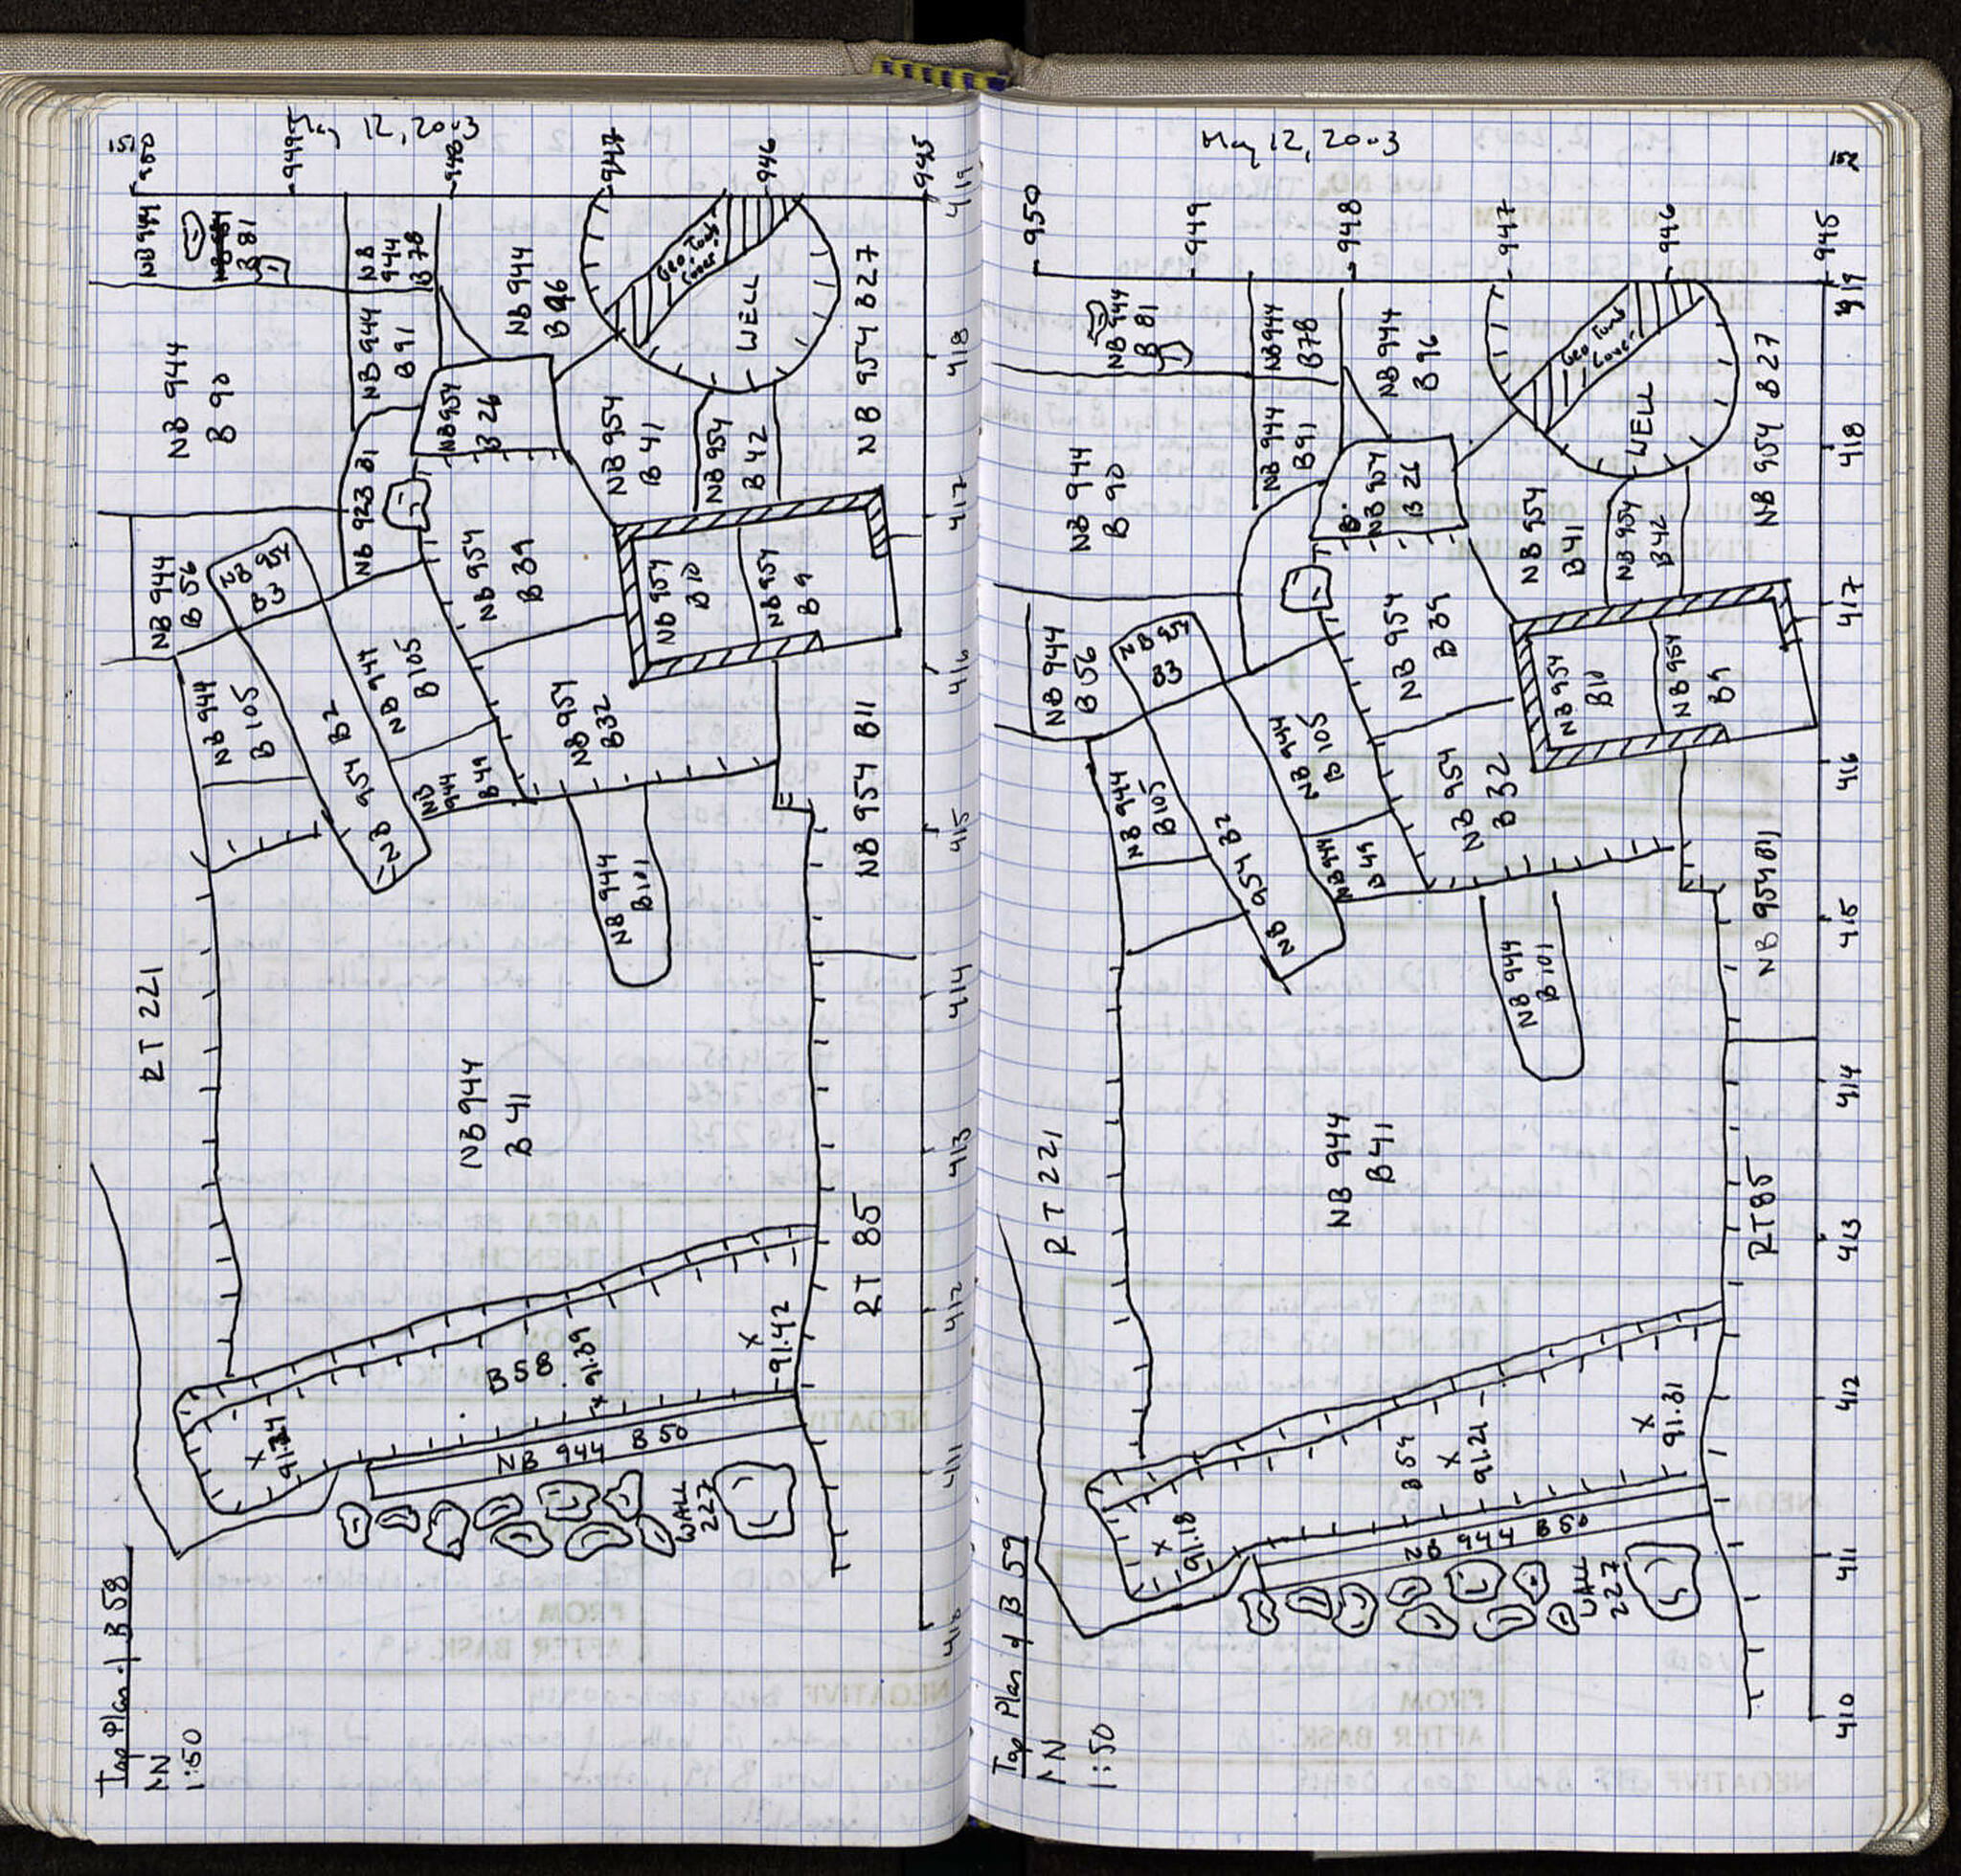 151
May 12, 2003
Top Plan of B 58
N
1:50
950
949
948
947
946
945
419
418
417
416
415
414
413
412
411
410
NB 944
B 81
NB
944
B 78
NB 944
B 96
Geo Tomb
Cover
WELL
NB 954 B27
NB 944
B 90
NB 944
B 91
NB 954
B 26
NB 954
B 41
NB 954
B 42
NB 923 B1
NB 944
B 56
NB 954
B3
NB 954
B 39
NB 954
B10
NB 954
B 9
NB 944
B 105
NB 954 B2
NB 944
B105
NB
944
B 49
NB 954
B32
NB 954 B11
NB 944
B101
RT 221
NB 944
B 41
RT 85
B58
x 91.39
x
91.42
x
NB 944 B 50
WALL
227
May 12, 2003
152
Top Plan of B 59
N
1:50
950
949
948
947
946
945
419
418
417
416
415
414
413
412
411
410
NB 944
B 81
NB 944
B78
NB 944
B 96
Geo Tomb
Cover
WELL
NB 954 B27
NB 944
B 90
NB 944
B91
NB 954
B 26
NB 954
B41
NB 954
B42
NB 944
B 56
NB 954
B3
NB 954
B39
NB 954
B10
NB 954
B9
NB 944
B105
NB 954 B2
NB 944
B105
NB 944
B 49
NB 954
B 32
NB 954 B11
NB 944
B101
RT 221
NB 944
B41
RT85
x
91.21
x
91.31
x
91.18
NB 944 B50
WALL
227